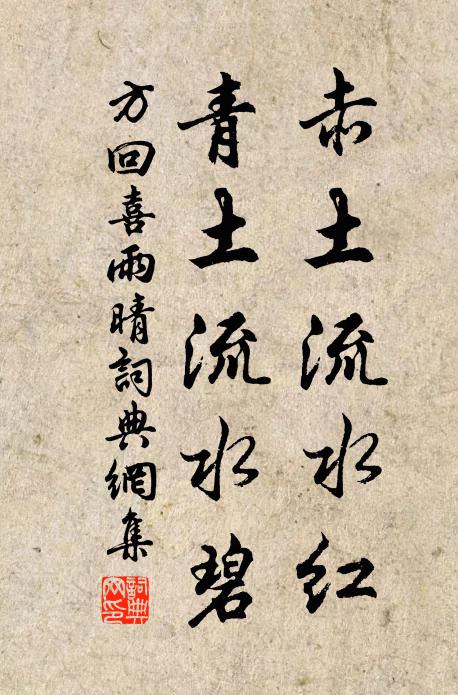 赤土流水红
青土流水碧
方回喜雨晴詞典網集
詞典網印